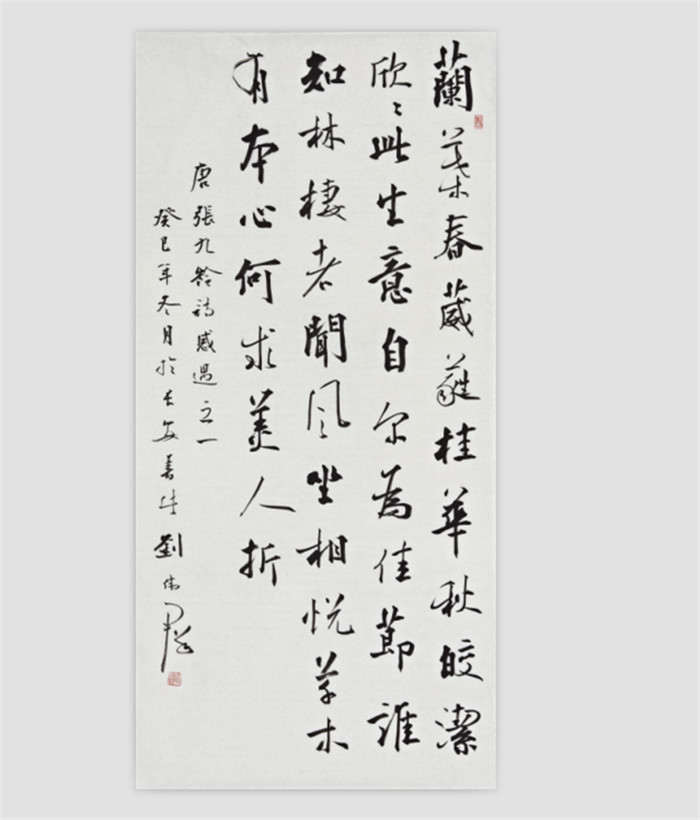 蘭葉春葳蕤桂華秋皎潔
欣〻此生意自尔為佳節誰
知林棲者聞風坐相悅草木
有本心何求美人折
唐張九龄詩感遇之一
癸巳年冬月於長安劉